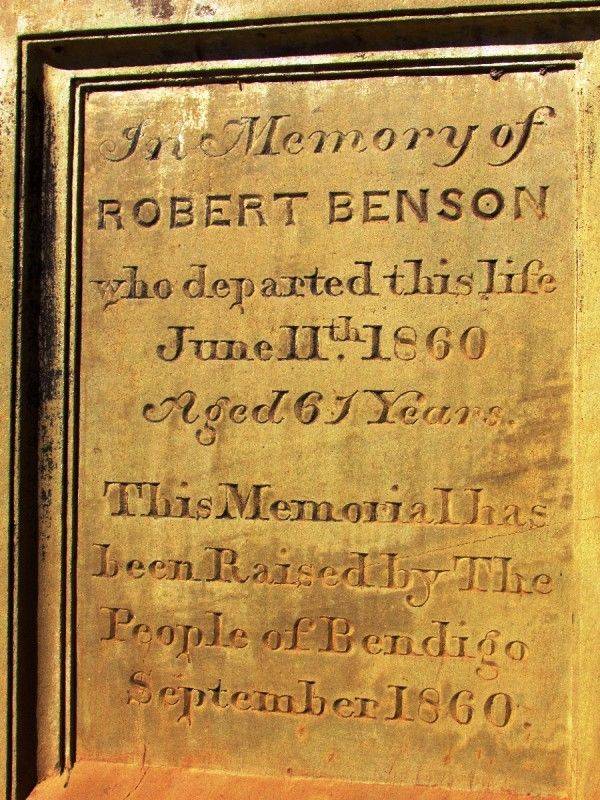 In Memory of
ROBERT BENSON
who departed this life
June 11th. 1860
Aged 61 Years.
This Memorial has
been Raised by The
People of Bendigo
September 1860.